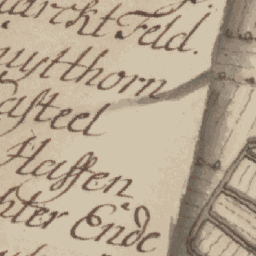 arckt Feld.
uytthorn
asteel
Haffen
hter Ende